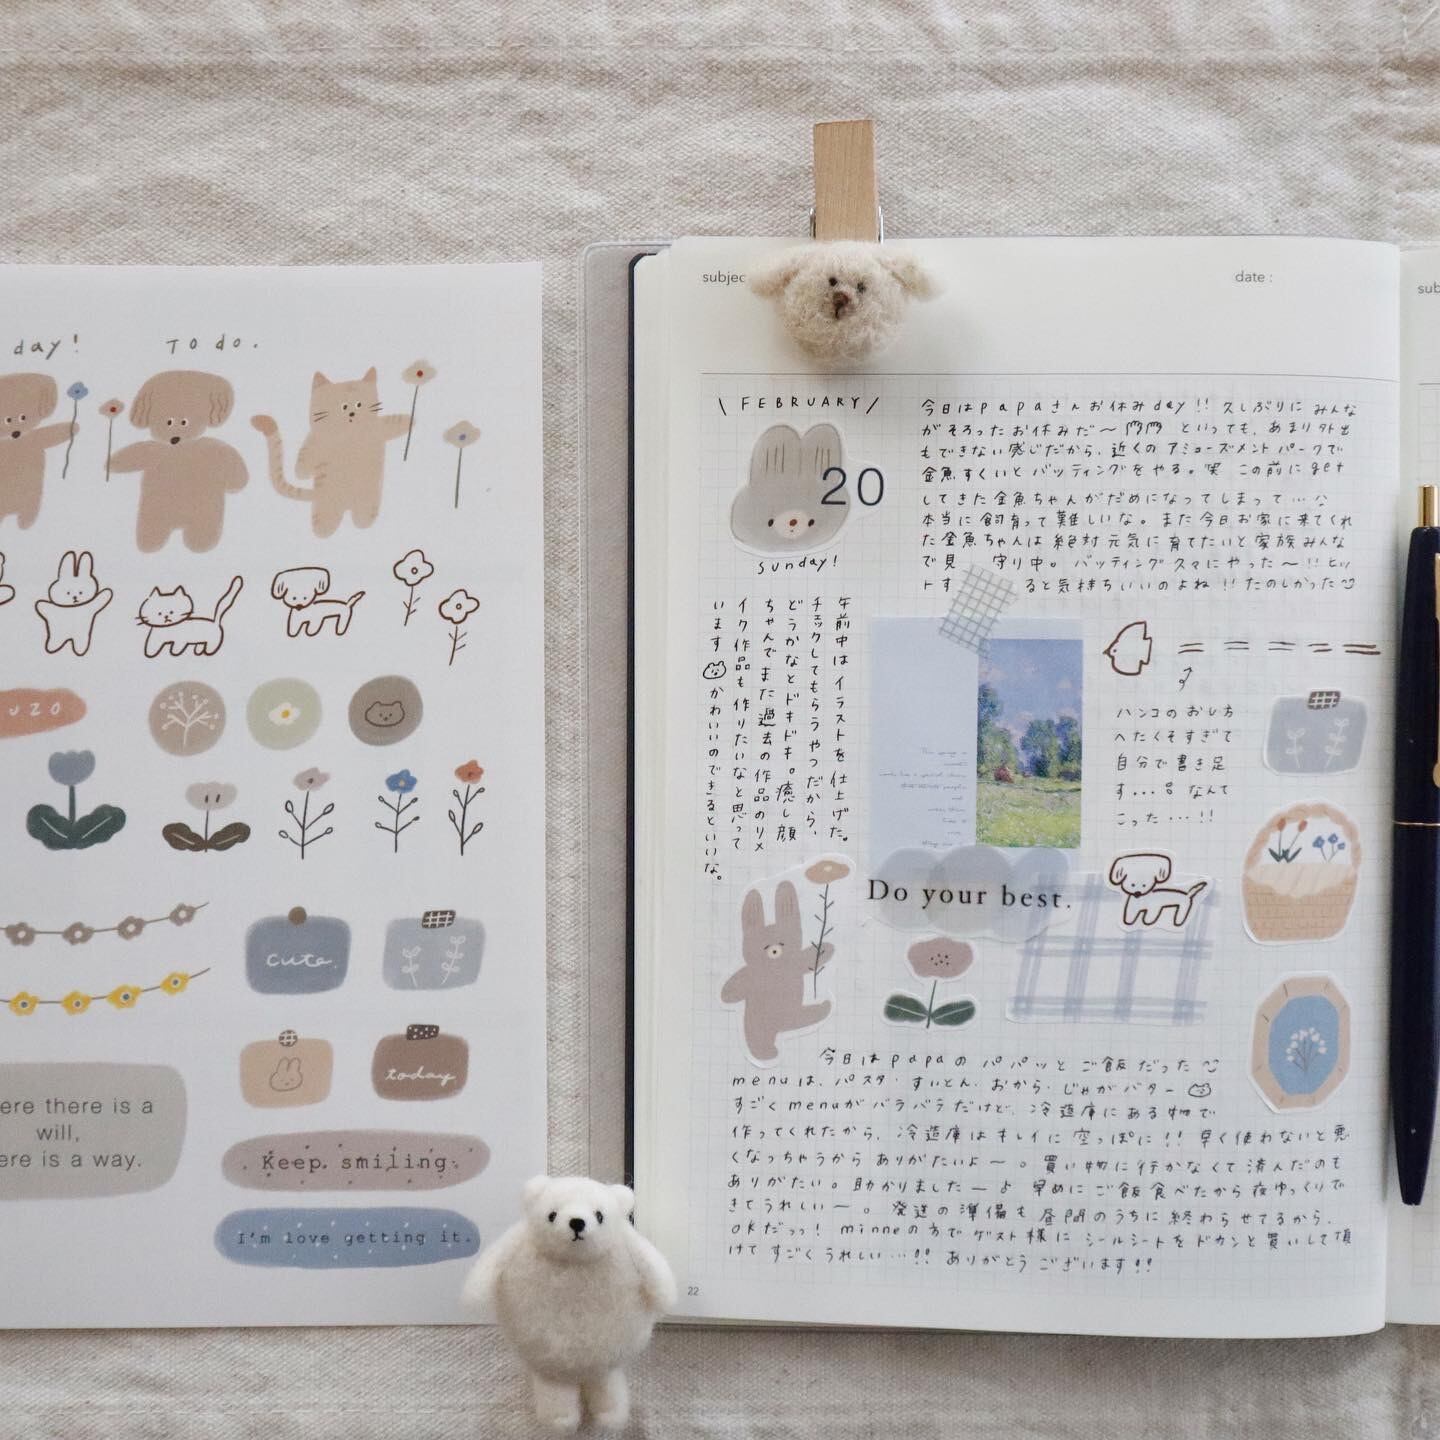 day!
To do.
uzo
cute.
today
ere there is a
will,
ere is a way.
Keep smiling.
I'm love getting it.
subjec
date :
sub
\ FEBRUARY /
20
sunday!
今日はpapaさんお休みday!! 久しぶりに みんな
がそろったお休みだ〜 といっても、あまり外出
もできない感じだから、近くのアミューズメントパークで
金魚すくいとバッティングをやる。笑 この前にget
してきた金魚ちゃんがだめになってしまって…
本当に飼育って難しいな。また今日お家に来てくれ
た金魚ちゃんは絶対元気に育てたいと家族みんな
で見 守り中。バッティングスマにやった〜!! ヒッ
トす ると気持ちいいのよね!! たのしかった
午前中はイラストを仕上げた。
チェックしてもらうやつだから、
どうかなとドキドキ。癒し顔
ちゃんでまた過去の作品のリメ
イク作品も作りたいなと思って
います かわいいのできるといいな。
ハンコのおし方
へたくそすぎて
自分で書き足
す... なんて
こった...!!
Do your best.
今日はpapaの パパッと ご飯だった
menuは、パスタ・すいとん・おから・じゃがバター
すごくmenuがバラバラだけど、冷蔵庫にある物で
作ってくれたから、冷蔵庫はキレイに空っぽに!! 早く使わないと悪
くなっちゃうから ありがたいよー。買い物に行かなくて済んだのも
ありがたい。助かりましたー 早めにご飯食べたから夜ゆっくりで
きてうれしいー。発送の準備も昼間のうちに終わらせてるから、
OKだっっ! minneの方でゲスト様に シールシートをドカンと買いして頂
けて すごくうれしい...!! ありがとうございます!!
22